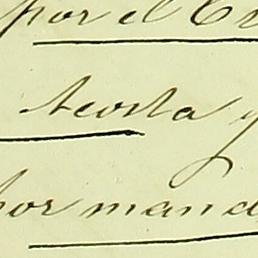 por el
Acosta y
por mand